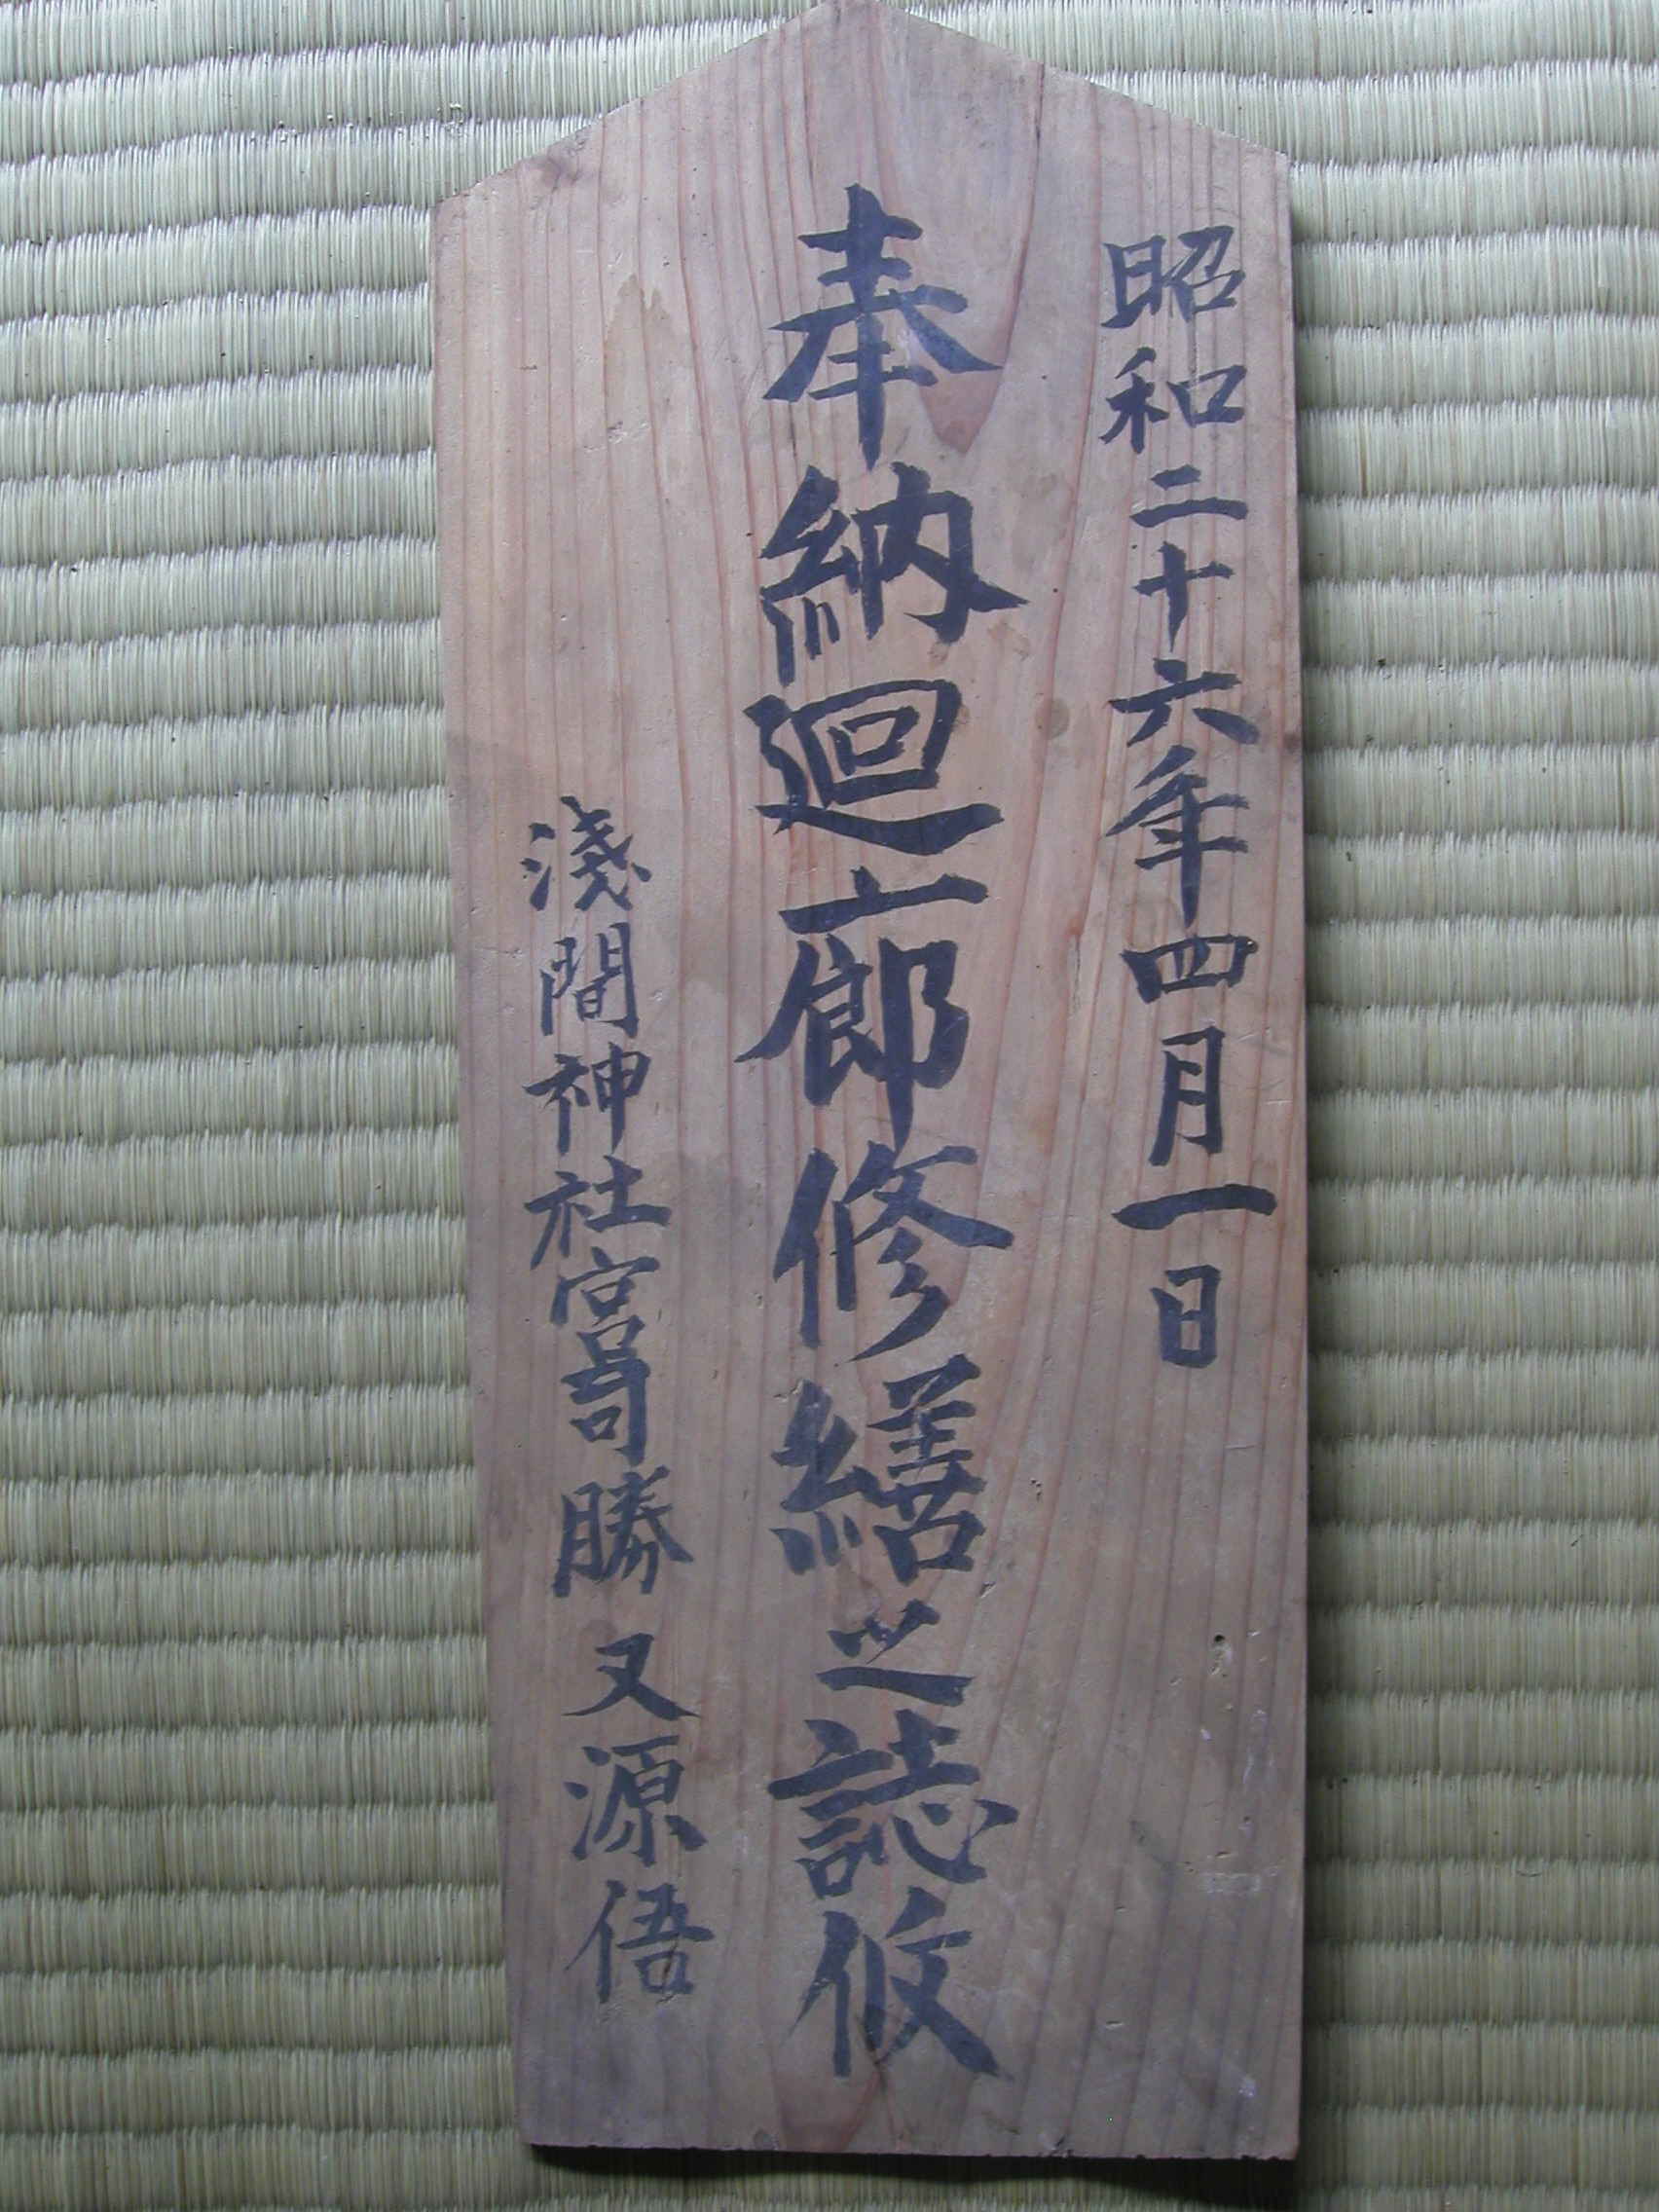 昭和二十六年四月一日
奉納廻廊修繕之誌
淺間神社宮 勝又源